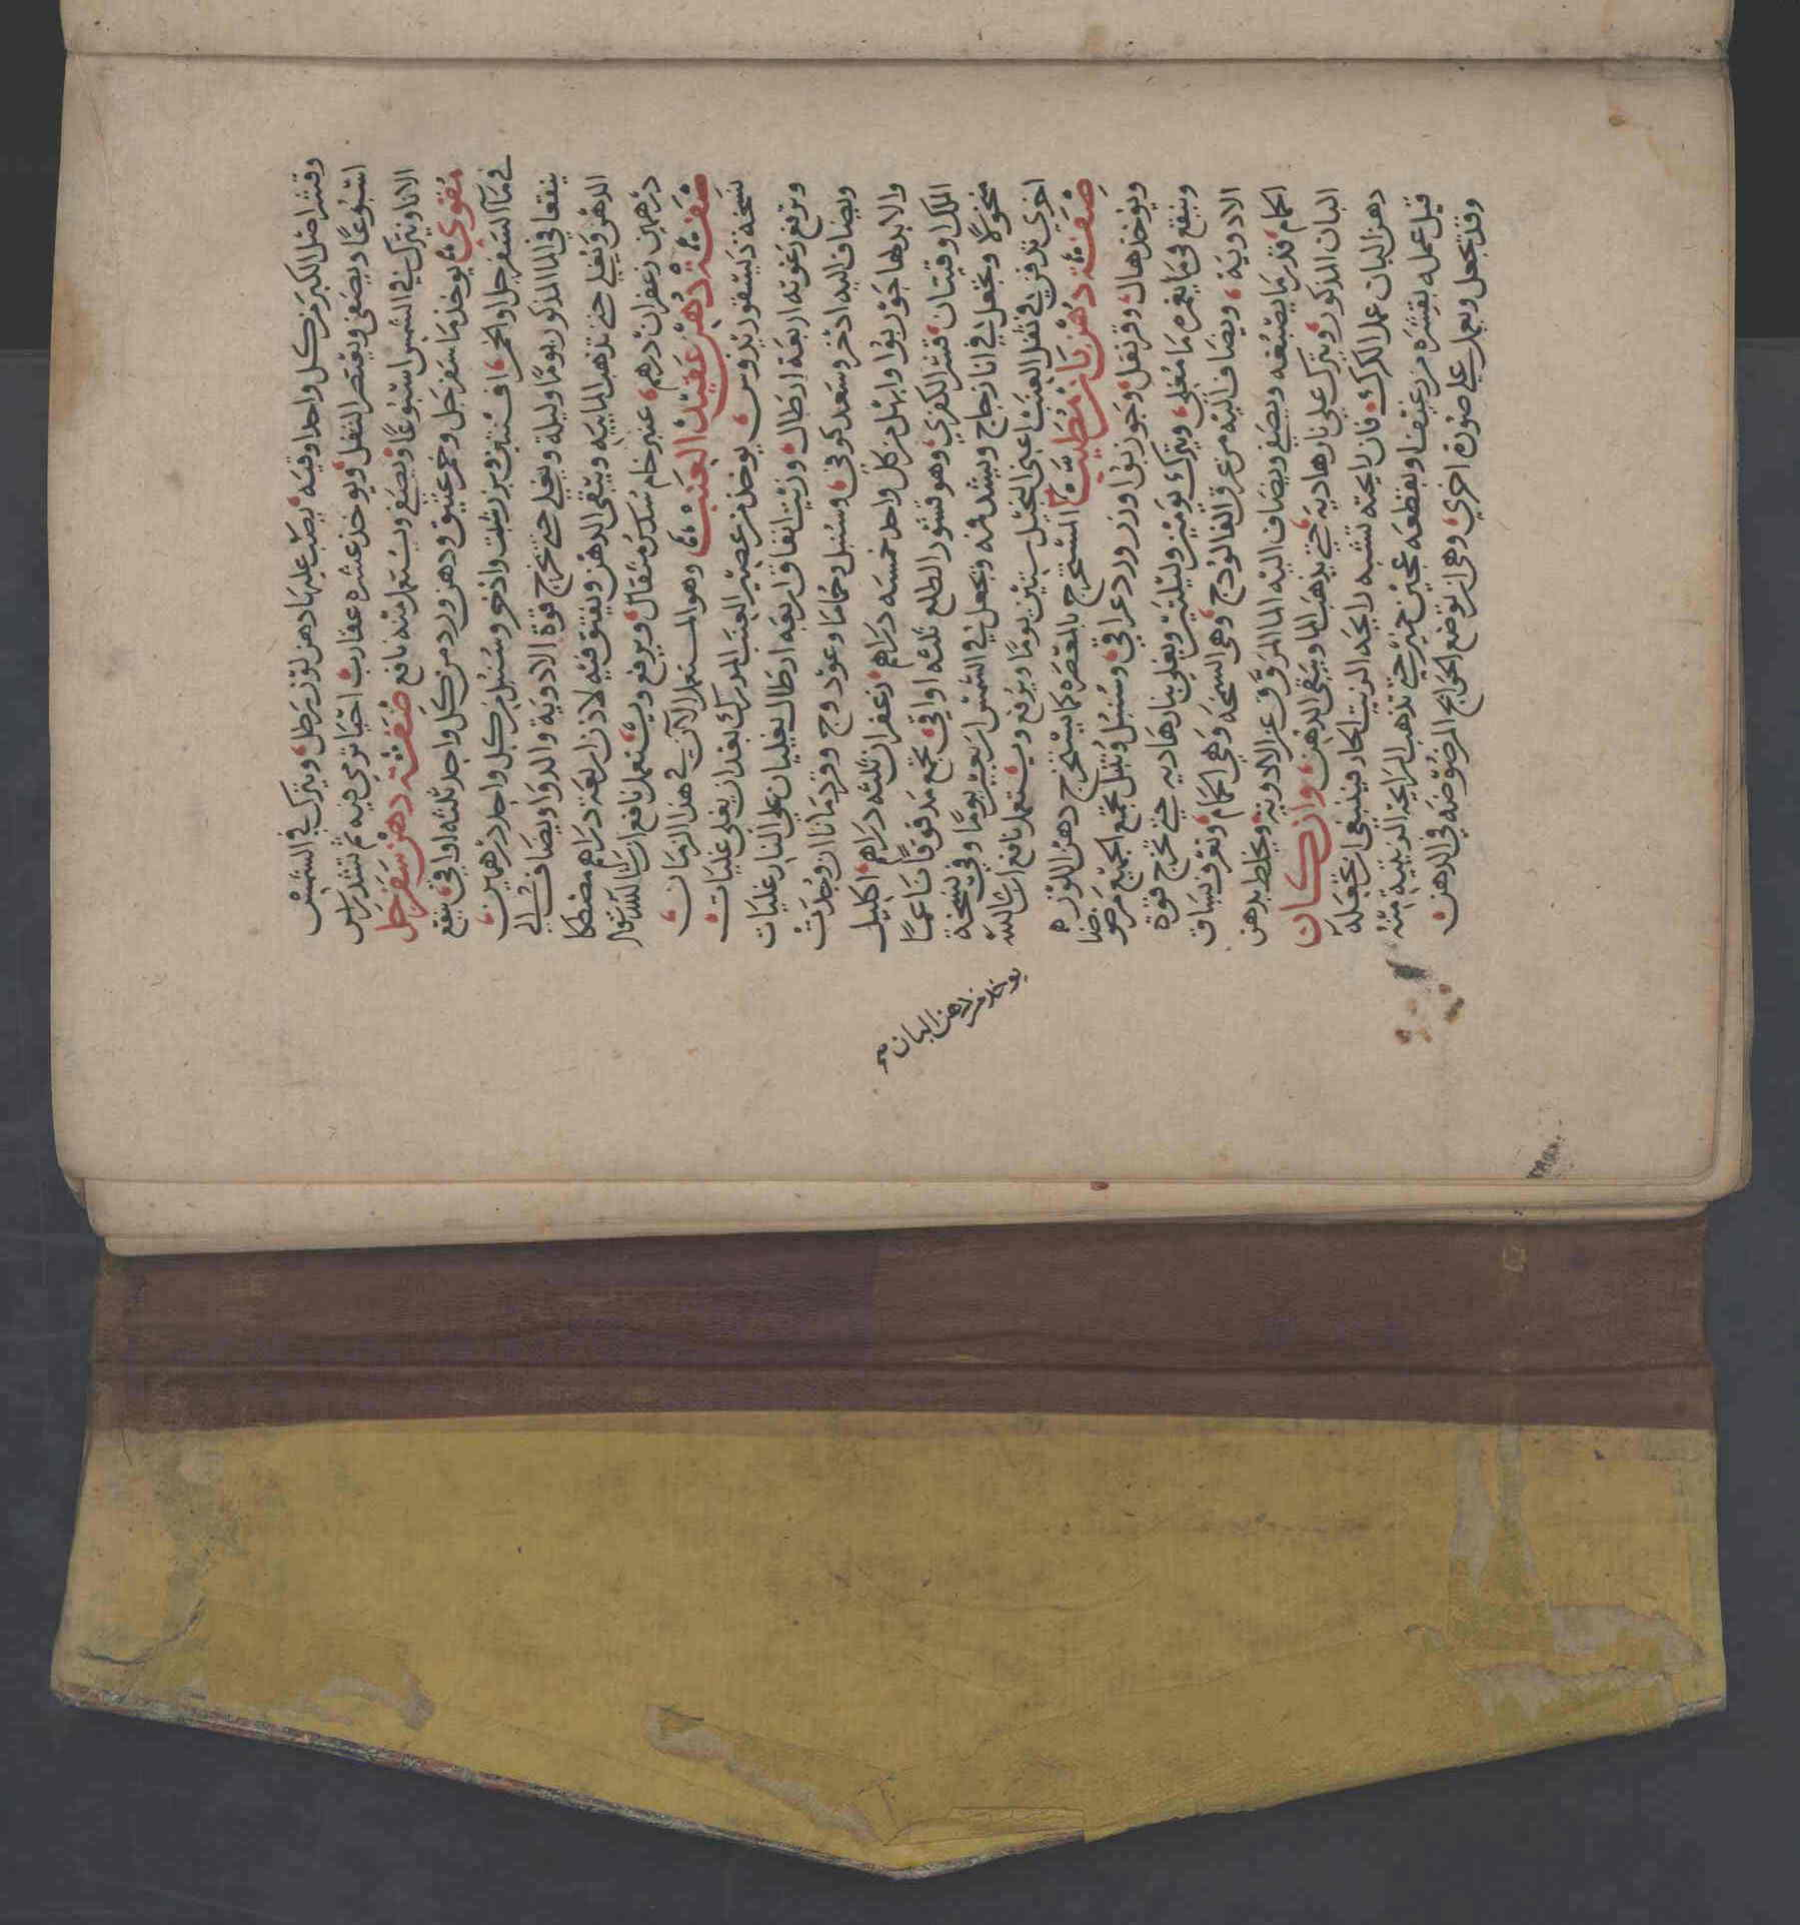 وقشر اصل الكبر من كل واحد اوقيه يصب عليها دهن لوز رطل ويترك في الشمس
اسبوعا ويصفي ويعتصر الثفل ويوخذ عشره عقارب احيا ترمي فيه ثم تشد راس
الانا ويترك في الشمس اسبوعا ويصفي ويستعمل فانه نافع صفة دهن سفرجل
مقوي يوخذ ما سفرجل وخمر عتيق ودهن ورد من كل واحد ثلثه اواقي ينقع
في ما السفرجل والخمر افسنتين وبزر شبت واذخر وسنبل من كل واحد درهمين
ينقعا في الما المذكور يوما وليلة ويغلي حتي تخرج قوة الادوية والدوا يضاف الي
الدهن ويغلي حتي تذهب المايية ويبقي الدهن ويفتق فيه لاذن اربعة دراهم مصطكا
درهمين زعفران درهم عنبر خام سدس مثقال ويرفع ويستعمل نافع ان شا الله تعالى
صفة دهن عقيد العنب وهو المستعمل الان في هذا الزمان
نسخة ذيسقوريذوس يوخذ من عصير العنب المدرك بعد ان يغلي غليات
وترفع رغوته اربعة ارطال وزيت انفاق اربعه ارطال يغليان علي النار غليات
ويضاف اليه اذخر وسعد كوفي وسنبل وحماما وعود وج وقردمانا ان وجدت
والا بدلها جوز بوا وابهل من كل واحد خمسه دراهم زعفران ثلثه دراهم اكليل
الملك اوقيتان قشر الكفري وهو قشور الطلع ثلثه اواقي تجمع مدقوقا ناعما
منخولا وتجعل في انا زجاج ويشد فمه وتجعل في الشمس اربعين يوما وفي نسخة
اخري تدفن في ثفل العنب اعني الثجيل ستين يوما ويرفع ويستعمل نافع ان شا الله
صفة دهن بان مطيب المستخرج بالمعصره كما يستخرج دهن اللوز
ويوخذ هال وقرنفل وجوز بوا وزر ورد عراقي وسنبل وتنبل تجمع الجميع مرضوضا
وينقع في ما يغمره ما مغلي ويترك يومين وليلتين ويغلي بنار هاديه حتي تخرج قوة
الادوية ويضاف اليه من عرق الفالوذج وهي السخة وهي الحمام وتعرف بساق
الحمام قدر ما يصبغه ويصفي ويضاف اليه الما المروق عن الادوية ويخلط بدهن
البان المذكور ويترك علي نار هادية حتي يذهب الما ويبقي الدهن وان كان
دهن البان عمل الكرك فان رايحته تشبه رايحة الزيت الحار فينبغي ان تجعله
قبل عمله بقشره من عتقا ويقطعه عجين خمير حتي تذهب الرايحة الزيتية منه
وقد تجعل ويعمل علي صورة اخري وهي ان توضع الحوايج المرضوضه في الدهن
يوخذ من دهن البان